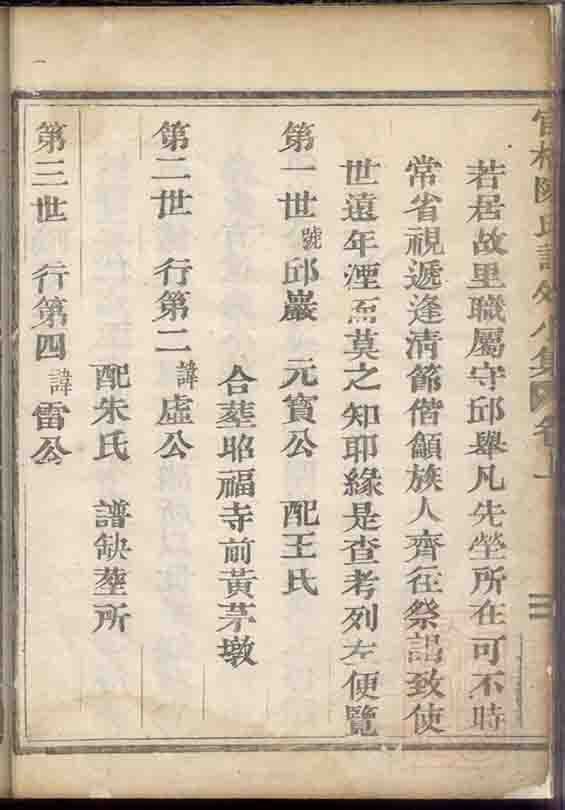 若居故里職屬守邱舉凡先塋所在可不時
常省視遞逢清節偕顓族人齊在祭詔致使
世遠年湮而莫之知耶緣是查考列左便覽
第一世號邱巖 元賓公 配王氏
合塟昭福寺前黃茅墩
第二世 行第二諱虛公
配朱氏 譜缺塟所
第三世 行第四諱雷公